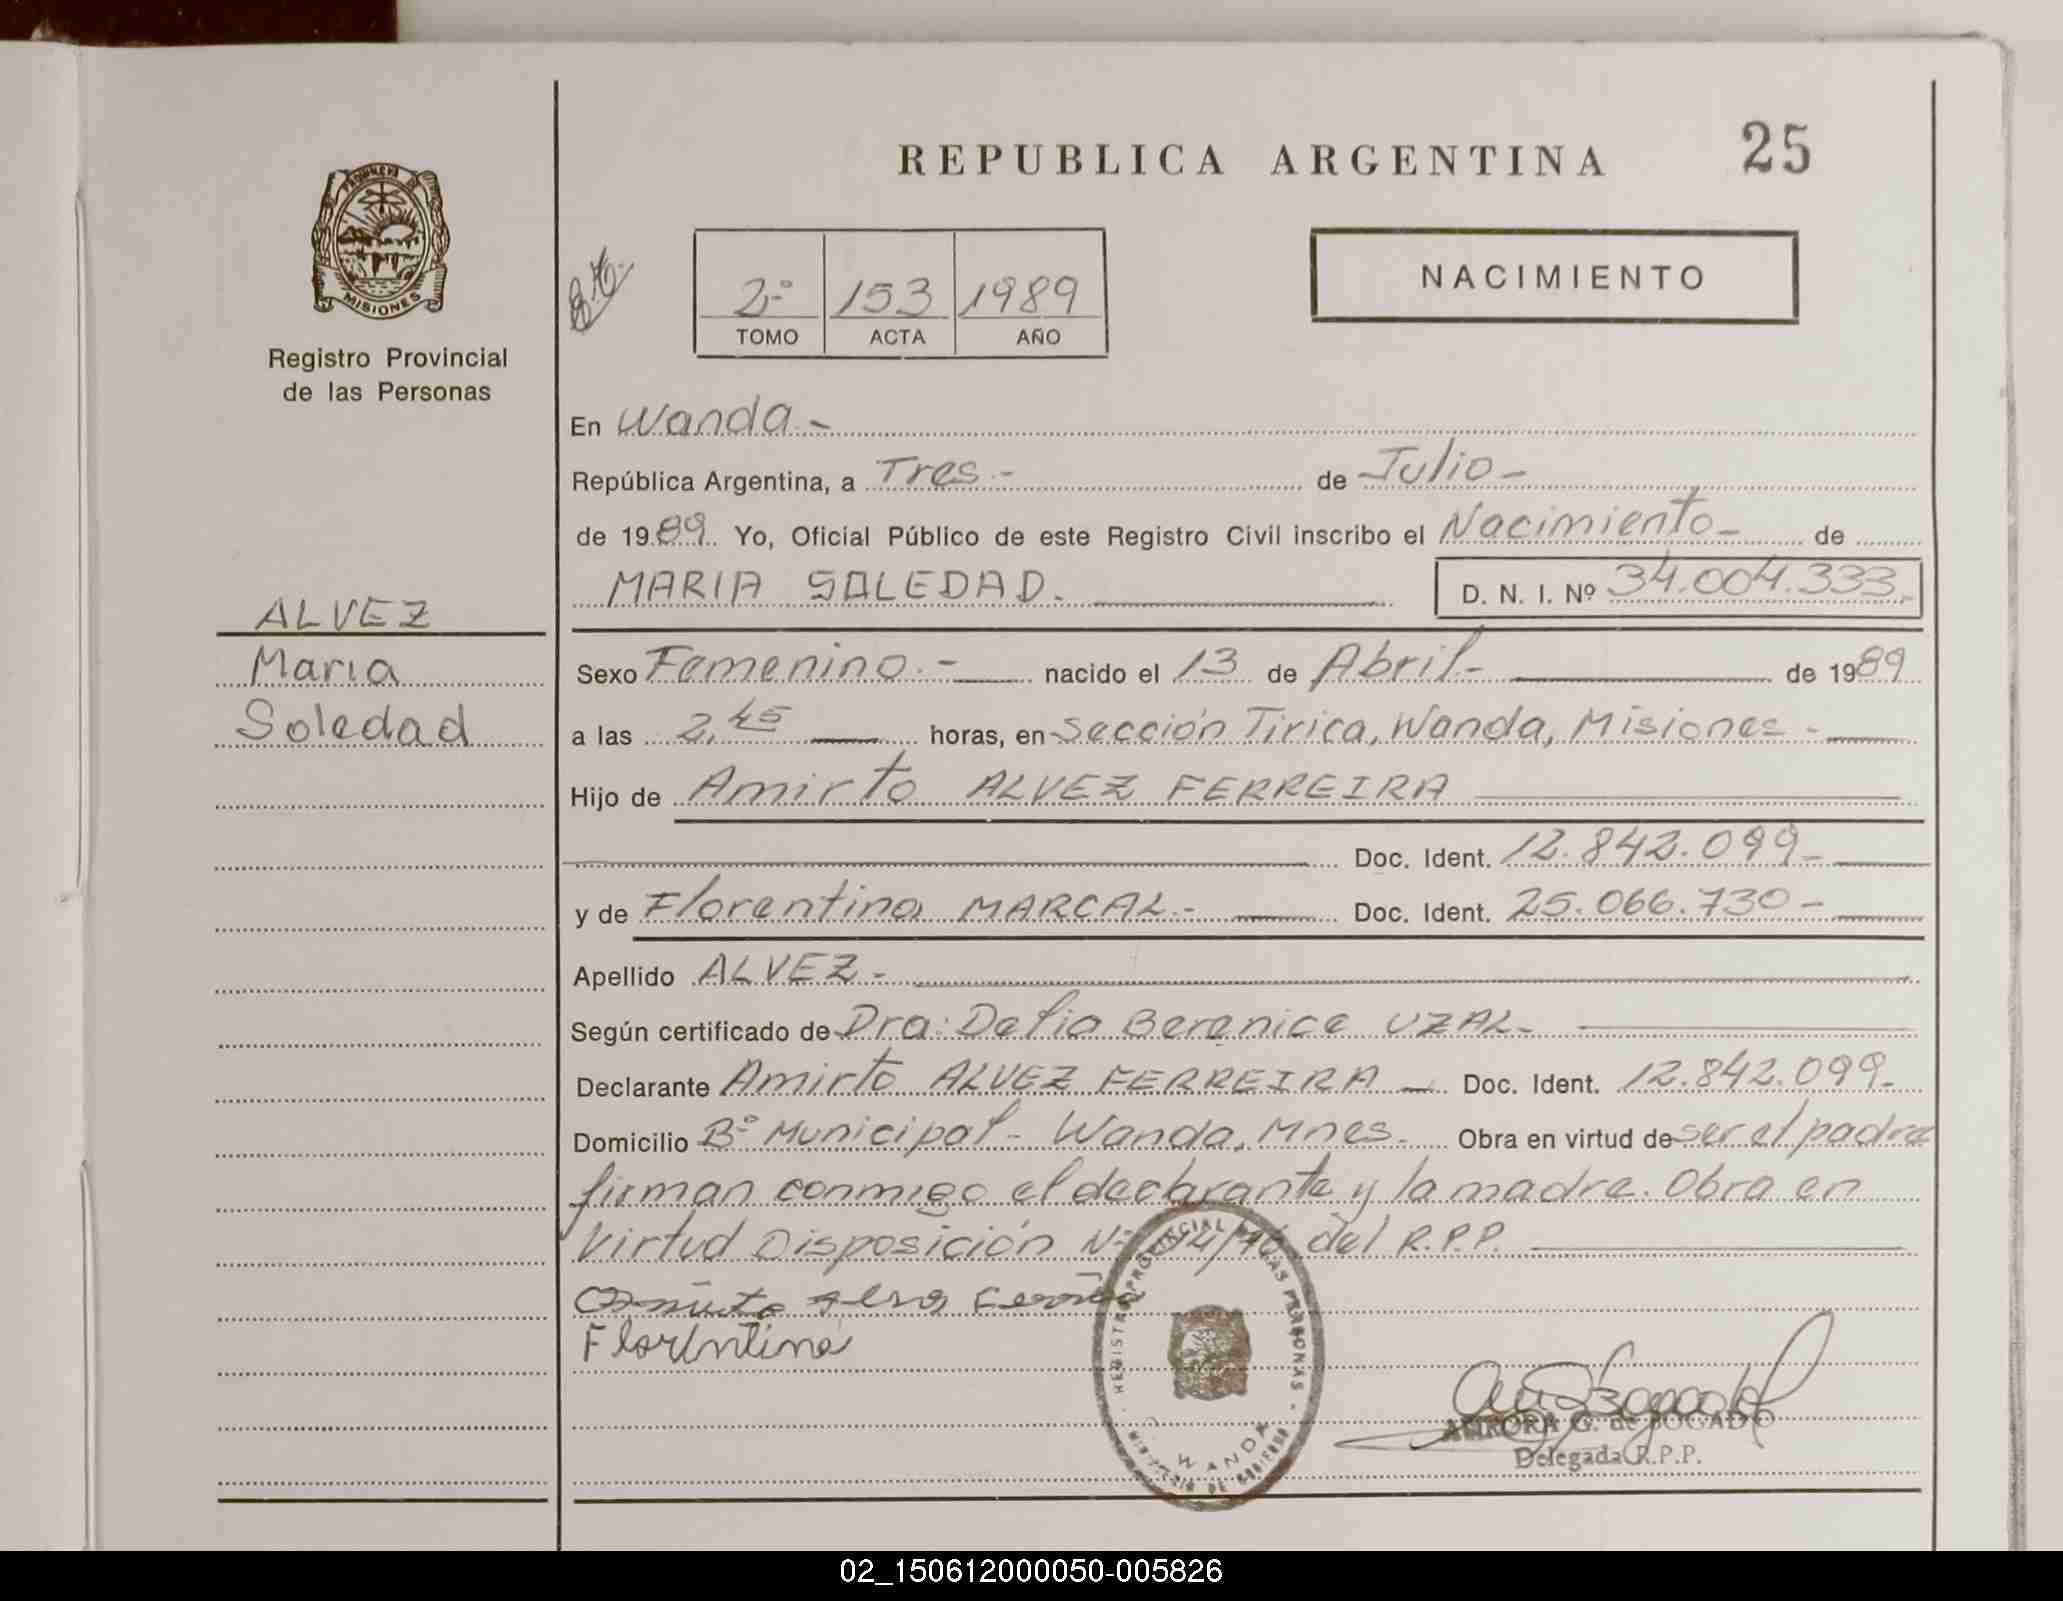 REPUBLICA ARGENTINA
25
PROVINCIA DE
MISIONES
Registro Provincial
de las Personas
2º 153 1989
TOMO ACTA AÑO
NACIMIENTO
En Wanda.-
República Argentina, a Tres.- de Julio-
de 1989. Yo, Oficial Público de este Registro Civil inscribo el Nacimiento- de
MARIA SOLEDAD. D. N. I. Nº 34.004.333.-
ALVEZ
Maria
Soledad
Sexo Femenino.- nacido el 13 de Abril- de 1989
a las 2,45 horas, en Sección Tirica, Wanda, Misiones-
Hijo de Amirto ALVEZ FERREIRA
Doc. Ident. 12.842.099-
y de Florentina MARCAL.- Doc. Ident. 25.066.730-
Apellido ALVEZ-
Según certificado de Dra: Delia Berenice UZAL-
Declarante Amirto ALVEZ FERREIRA - Doc. Ident. 12.842.099-
Domicilio Bº Municipal- Wanda, Mnes. Obra en virtud de ser el padre
firman conmigo el declarante y la madre. Obra en
Virtud Disposición Nº del R.P.P.
Florentina
REGISTRO PROVINCIAL DE LAS PERSONAS
WANDA
MINISTERIO DE GOBIERNO
AURORA G. de BOGADO
Delegada R.P.P.
02_150612000050-005826